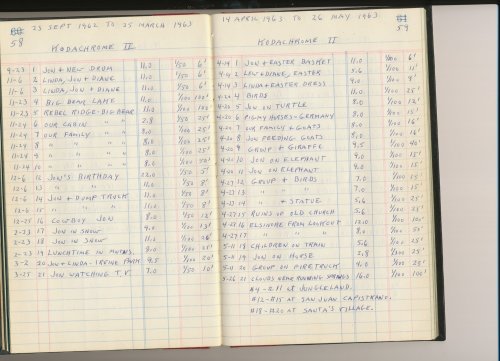 23 SEPT 1962 TO 25 MARCH 1963
58
KODACHROME II
9-23 1 JON + NEW DRUM 11.0 1/50 6'
11-6 2 LINDA, JON + DIANE 11.0 1/50 6'
11-6 3 LINDA, JON + DIANE 11.0 1/50 6'
11-23 4 BIG BEAR LAKE 11.0 1/100 100'
11-23 5 REBEL RIDGE - BIG BEAR 1/100
11-23 6 OUR CABIN 2.8 1/50 25'
11-24 7 OUR FAMILY 8.0 1/100 25'
11-24 8 " " 8.0 1/100 25'
11-24 9 " " 8.0 1/100
11-24 10 " " 8.0 1/100
12-6 12 JON'S BIRTHDAY 22.0 1/50 5'
12-6 13 " " 11.0 1/50 8'
12-6 14 JON + DUMP TRUCK 11.0 1/50 8'
12-6 15 " " 11.0 1/50 8'
12-25 16 COWBOY JON 8.0 1/50 12'
12-23 17 JON IN SNOW 1/100 13'
12-23 18 JON IN SNOW 11.0 1/100 26'
12-23 19 LUNCHTIME IN MNTNS. 1/100 20'
3-2 20 JON + LINDA - IRVINE PARK 9.5 1/100 20'
3-25 21 JON WATCHING T.V. 7.0 1/50 10'
14 APRIL 1963 TO 26 MAY 1963
59
KODACHROME II
4-14 1 JON + EASTER BASKET 11.0 1/100 6'
4-14 2 LEW + DIANE, EASTER 5.6 1/100 11'
4-14 3 LINDA + EASTER DRESS 11.0 1/100 8'
4-20 4 BIRDS 11.0 1/100
4-20 5 JON ON TURTLE 8.0 1/100 12'
4-20 6 PIGMY HORSES - GERMANY 8.0 1/100 15'
4-20 7 OUR FAMILY + GOATS 8.0 1/100
4-20 8 JON FEEDING GOATS 8.0 1/100
4-20 9 GROUP + GIRAFFE 9.5 1/100 40'
4-20 10 JON ON ELEPHANT 4.0 1/100 15'
4-20 11 JON ON ELEPHANT 4.0 1/100 15'
4-27 12 GROUP + BIRDS 7.0 1/100 15'
4-27 13 " " 7.0 1/100 15'
4-27 14 " + STATUE 5.6 1/100 25'
4-27 15 RUINS OF OLD CHURCH 5.6 1/100 25'
4-27 16 ELSINORE FROM LOOKOUT 12.0 1/100 100'
4-27 17 " " 8.0 1/100
5-11 18 CHILDREN ON TRAIN 5.6 1/100 25'
5-11 19 JON ON HORSE 2.8 1/100 25'
5-11 20 GROUP ON FIRETRUCK 4.0 1/100 25'
5-26 21 CLOUDS NEAR RUNNING SPRINGS 16.0 1/100 100'
#4-#11 AT JUNGLELAND.
#12-#15 AT SAN JUAN CAPISTRANO.
#18-#20 AT SANTA'S VILLAGE.